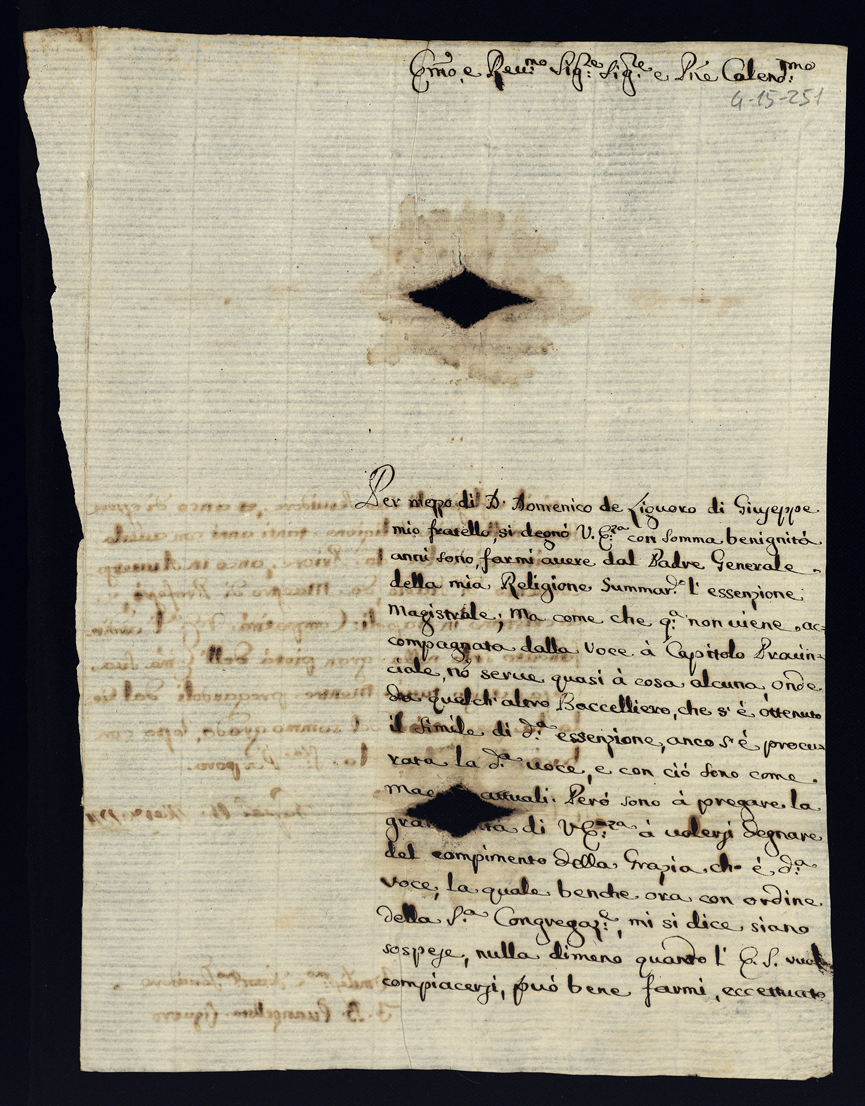 Em̃o, e Reu:mo Sig:re Sig:re e Pñe Colend:mo
4-15-251
Per mezzo di D. Domenico de Liguoro di Giuseppe
mio fratello, si degnò V. E:za con somma benignità
anni sono, farmi auere dal Padre Generale
della mia Religione Summar:e l'essenzione
Magistrale; Ma come che q:a non uiene ac=
compagnata dalla Voce à Capitolo Prouin=
ciale, nõ serue quasi à cosa alcuna, onde
da qualch'altro Baccelliero, che s'è ottenuto
il simile di d:a essenzione, anco s'è procu=
rata la d:a uoce, e con ciò sono come
Mae attuali. Però sono à pregare la
gran di V. E:za à uolersi degnare
del compimento della Grazia, ch'è d:a
Voce, la quale benche ora con ordine
della S:a Congregaz:e, mi si dice siano
sospese, nulla dimeno quando l'E. S. vuol
compiacersi, può bene farmi, eccettuato